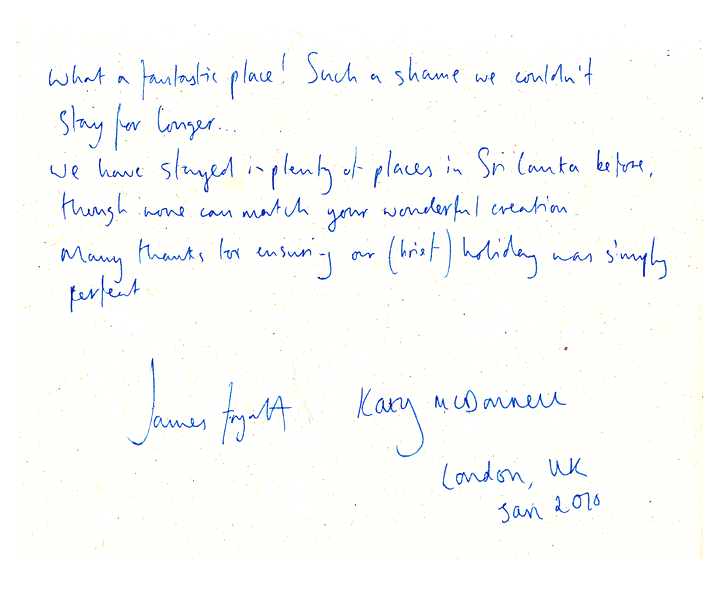 What a fantastic place! Such a shame we couldn't
stay for longer...
We have stayed in plenty of places in Sri Lanka before,
though none can match your wonderful creation.
Many thanks for ensuring our (brief) holiday was simply
perfect
James Kary McDonnell
London, UK
Jan 2010